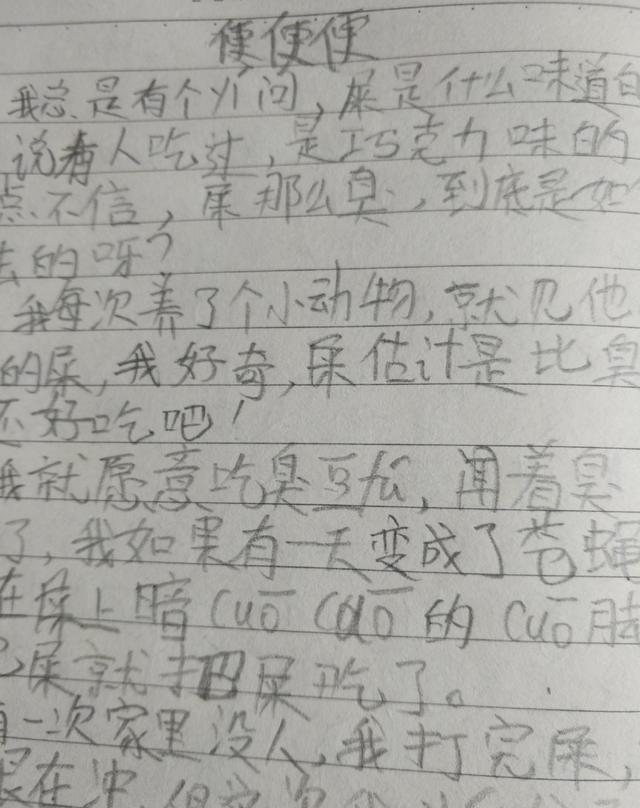 便便便
我总是有个以问,屎是什么味道的
说有人吃过,是巧克力味的
总不信,屎那么臭,到底是
去的呀?
我每次养了个小动物,就见他
的屎,我好奇,屎估计是比臭
不好吃吧!
我就愿意吃臭豆似,闻着臭
了,我如果有一天变成了苍蝇
在屎上唱cuō cuō的cuō
屎就把屎吃了。
一次家里没人,我打完屎,
在冲